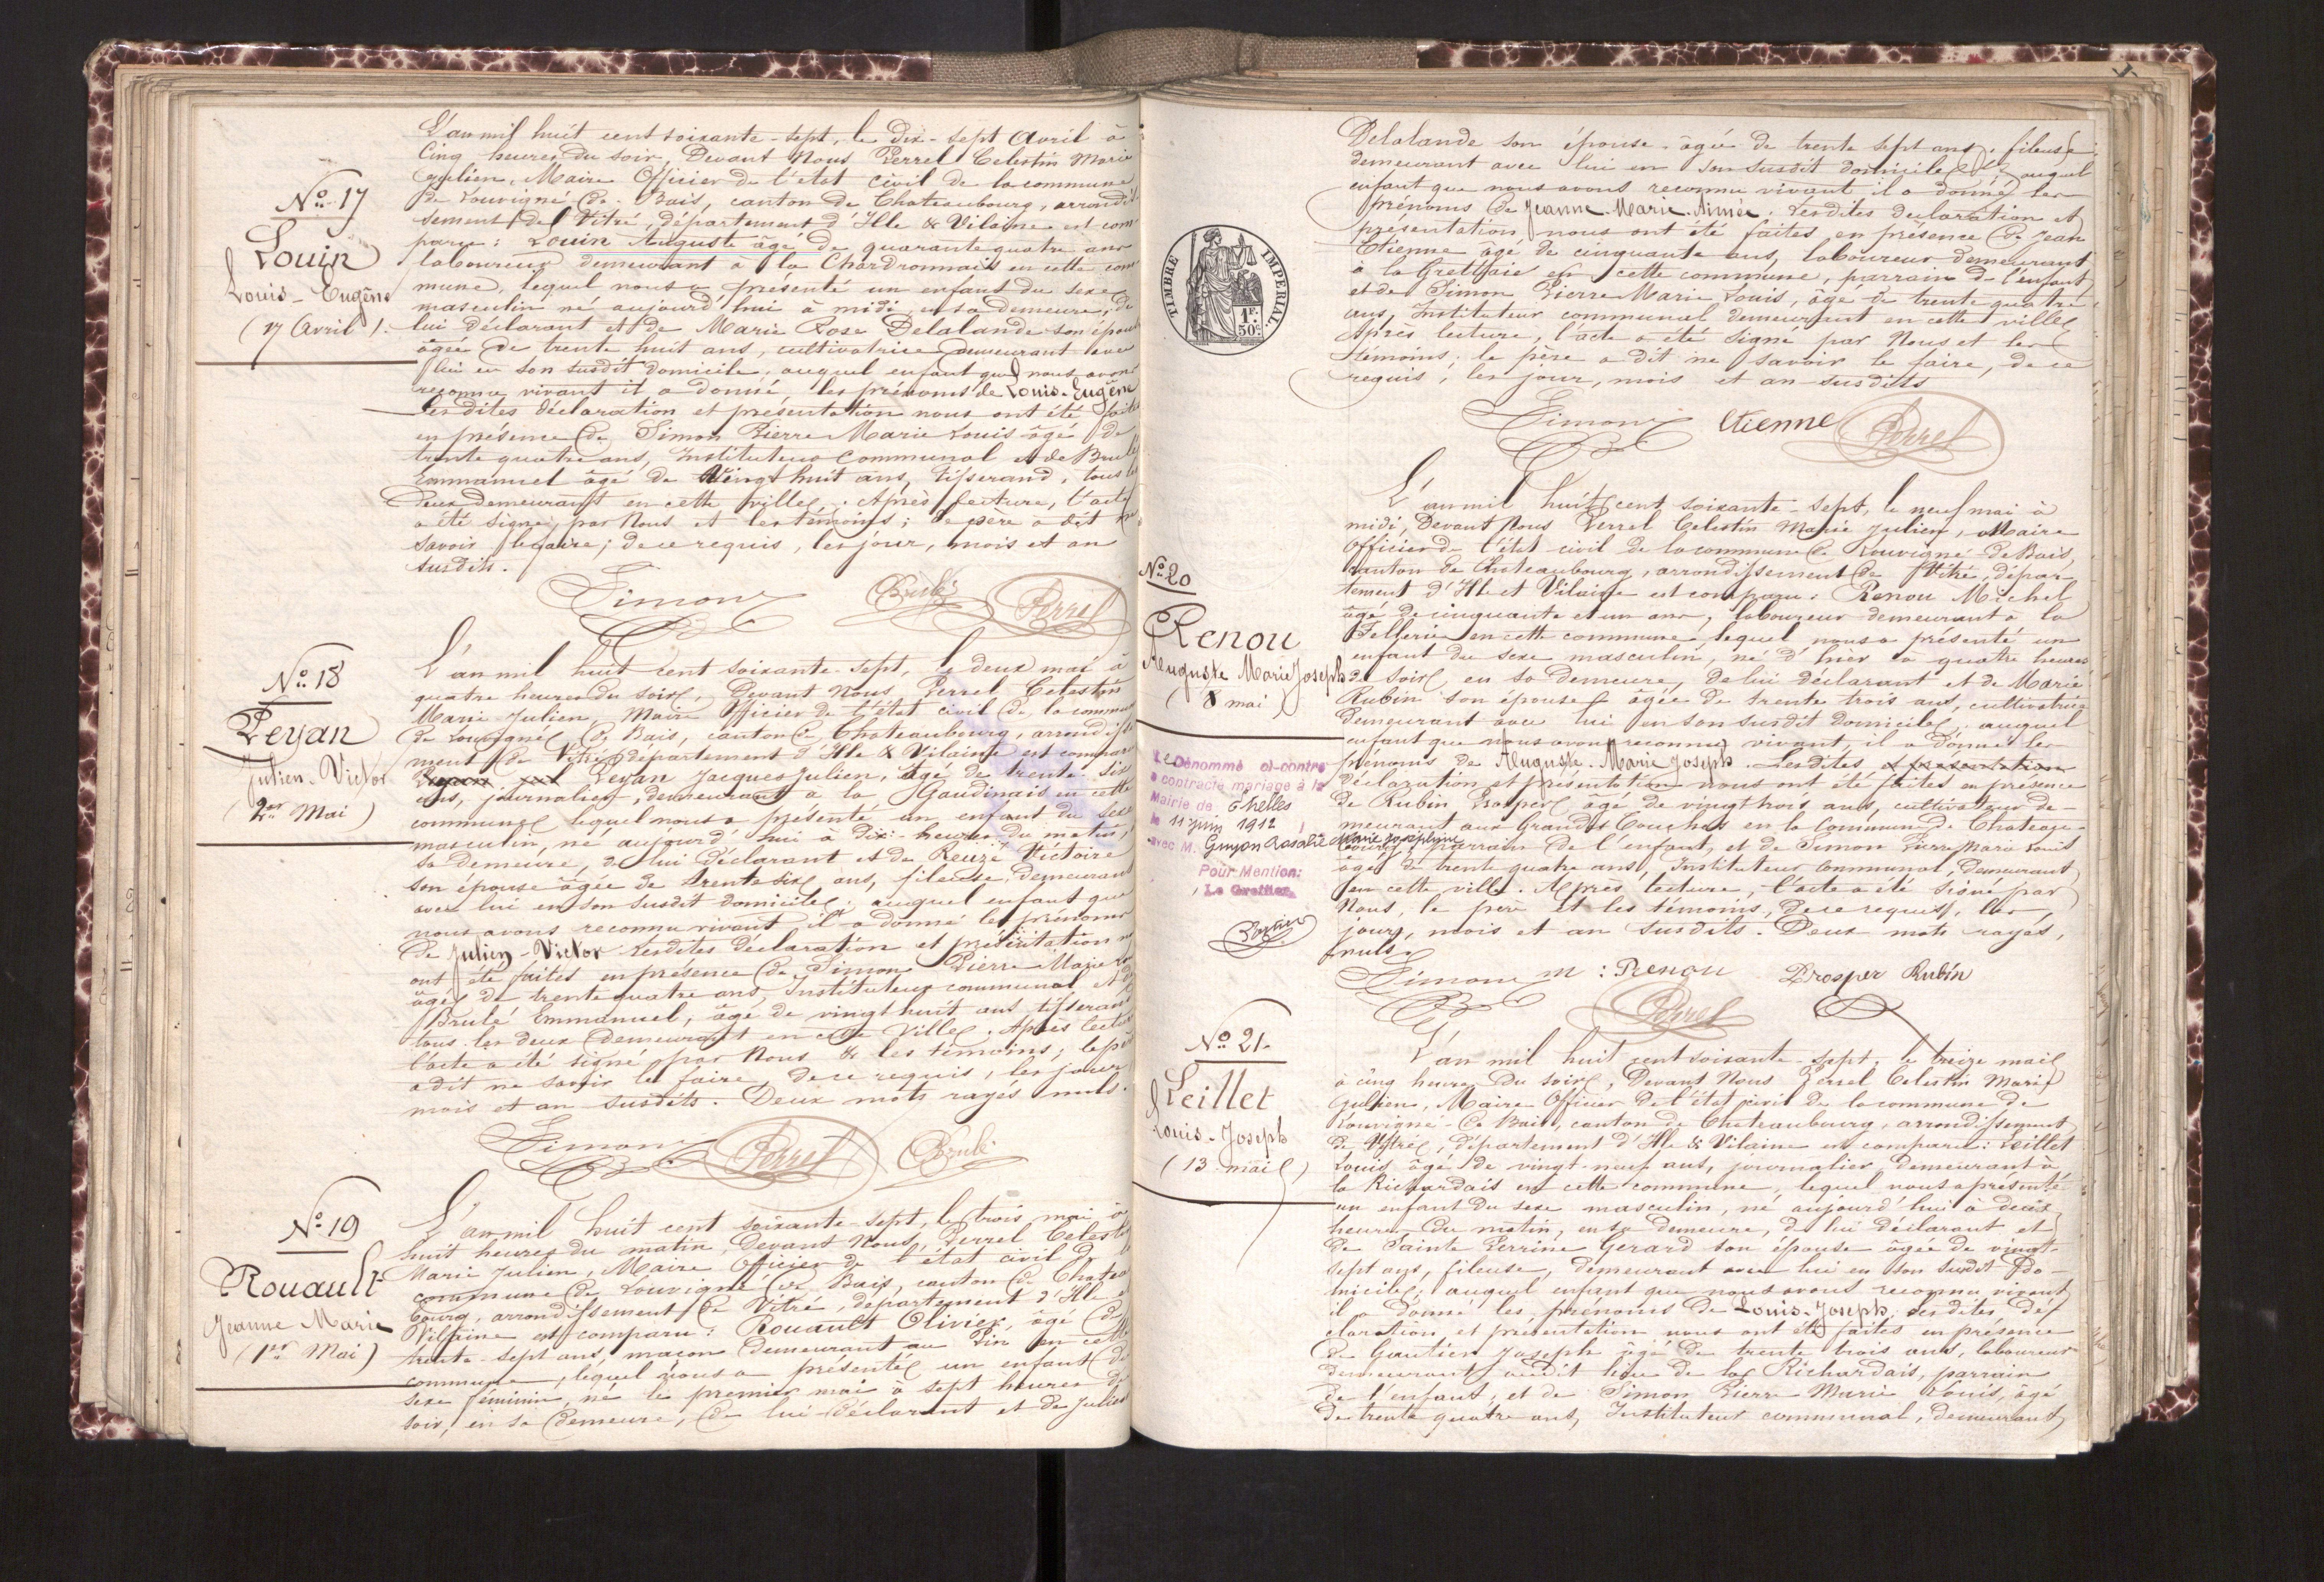 No. 17
Louin
Louis-Eugène
(17 Avril).
L'an mil huit cent soixante-sept, le dix-sept Avril à
Cinq heures du soir, Devant Nous Perrel Celestin Marie
Julien, Maire Officier de l'état civil de la commune
de Louvigné de Bais, canton de Chateaubourg, arrondis
sement de Vitré, département d'Ille & Vilaine est com
paru: Louin Auguste âgé de quarante quatre ans
laboureur demeurant à la Chardronnais en cette com
mune, lequel nous a présenté un enfant du sexe
masculin né aujourd'hui à midi, en sa demeure, de
lui déclarant et de Marie Rose Delalande son épouse
âgée de trente huit ans, cultivatrice demeurant avec
lui en son susdit domicile, auquel enfant que nous avons
reconnu vivant il a donné les prénoms de Louis-Eugène
Lesdites déclaration et présentation nous ont été faites
en présence de Simon Pierre Marie Louis âgé de
trente quatre ans, Instituteur Communal et de Brulé
Emmanuel âgé de Vingt huit ans, tisserand, tous les
deux demeurant en cette ville. Après lecture, l'acte
a été signé, par Nous et les témoins; le père a dit ne
savoir le faire; de ce requis, les jour, mois et an
susdits.
Simon Brulé Perrel
No. 18
Peyan
Julien-Victor
(2er Mai)
L'an mil huit cent soixante-sept, le deux mai à
quatre heures du soir, Devant Nous Perrel Celestin
Marie Julien, Maire Officier de l'état civil de la commune
de Louvigné de Bais, canton de Chateaubourg, arrondisse
ment de Vitré, département d'Ille & Vilaine est comparu
Peyan Jacques Julien, âgé de trente six
ans, journalier, demeurant à la Gaudinais en cette
commune lequel nous a présenté un enfant du sexe
masculin, né aujourd'hui à dix heures du matin,
sa demeure, de lui déclarant et de Reuzé Victoire
son épouse âgée de trente six ans, fileuse, demeurant
avec lui en son susdit domicile; auquel enfant que
nous avons reconnu vivant il a donné les prénoms
de Julien-Victor Lesdites déclaration et présentation nous
ont été faites en présence de Simon Pierre Marie Louis
âgé de trente quatre ans Instituteur communal et de
Brulé Emmanuel, âgé de vingt huit ans tisserand
tous les deux demeurant en cette Ville. Après lecture
l'acte a été signé par Nous & les témoins; le père
a dit ne savoir le faire de ce requis, les jour
mois et an susdits. Deux mots rayés nuls.
Simon Perrel Brulé
No. 19
Rouault
Jeanne Marie
(1er Mai)
L'an mil huit cent soixante-sept, le trois mai à
huit heures du matin, Devant Nous, Perrel Celestin
Marie Julien, Maire Officier de l'état civil de la
commune de Louvigné de Bais, canton de Chateau
bourg, arrondissement de Vitré, département d'Ille et
Vilaine est comparu: Rouault Olivier, âgé de
trente-sept ans, maçon demeurant au Pin en cette
commune, lequel nous a présenté un enfant du
sexe féminin, né le premier mai à sept heures du
soir, en sa demeure, de lui déclarant et de Julie
TIMBRE IMPERIAL.
1F.
50c.
Delalande son épouse âgée de trente sept ans, fileuse
demeurant avec lui en son susdit domicile; auquel
enfant que nous avons reconnu vivant il a donné les
prénoms de Jeanne-Marie-Aimée. Lesdites déclaration et
présentation nous ont été faites en présence de Jean
Etienne âgé de cinquante ans, laboureur demeurant
à la Grettaie en cette commune, parrain de l'enfant
et de Simon Pierre Marie Louis, âgé de trente quatre
ans, Instituteur communal demeurant en cette ville
Après lecture, l'acte a été signé par Nous et les
témoins; le père a dit ne savoir le faire, de ce
requis; les jour, mois et an susdits
Simon Etienne Perrel
No. 20
Renou
Auguste Marie Joseph
(8 mai)
L'an mil huit cent soixante-sept, le neuf mai à
midi, Devant Nous Perrel Celestin Marie Julien, Maire
Officier de l'état civil de la commune de Louvigné de Bais
canton de Chateaubourg, arrondissement de Vitré, dépar-
tement d'Ille et Vilaine est comparu: Renou Michel
âgé de cinquante et un ans, laboureur demeurant à la
Tellerie en cette commune lequel nous a présenté un
enfant du sexe masculin, né d'hier à quatre heures
du soir, en sa demeure, de lui déclarant et de Marie
Rubin son épouse âgée de trente trois ans, cultivatrice
demeurant avec lui en son susdit domicile, auquel
enfant que nous avons reconnu vivant, il a donné les
prénoms de Auguste-Marie Joseph. Lesdites et présentation
déclaration et présentation nous ont été faites en présence
de Rubin Prosper âgé de vingt trois ans, cultivateur de-
meurant aux Grandes Couches en la Commune de Chateau-
bourg, parrain de l'enfant, et de Simon Pierre Marie Louis
âgé de trente quatre ans, Instituteur communal, Demeurant
en cette ville. Après lecture, l'acte a été signé par
Nous, le père et les témoins, de ce requis, les
jour, mois et an susdits. Deux mots rayés,
nuls.
Le Dénommé ci-contre
a contracté mariage à la
Mairie de Chelles
le 11 juin 1912
avec M. Guyon Rosalie Marie Joséphine
Pour Mention:
Le Greffier,
Simon M: Renou Prosper Rubin
Perrel
No. 21.
Leillet
Louis-Joseph
(13 mai)
L'an mil huit cent soixante-sept, le treize mai
à cinq heures du soir, Devant Nous Perrel Celestin Marie
Julien, Maire Officier de l'état civil de la commune de
Louvigné-de Bais, canton de Chateaubourg, arrondissement
de Vitré, département d'Ille & Vilaine est comparu: Leillet
Louis âgé de vingt-neuf ans, journalier demeurant à
la Richardais en cette commune, lequel nous a présenté
un enfant du sexe masculin, né aujourd'hui à deux
heures du matin, en sa demeure, de lui déclarant et
de Sainte Perrine Gerard son épouse âgée de vingt-
sept ans, fileuse, demeurant avec lui en son susdit do-
micile; auquel enfant que nous avons reconnu vivant
il a donné les prénoms de Louis-Joseph. Lesdites dé-
claration et présentation nous ont été faites en présence
de Gautier Joseph âgé de trente trois ans, laboureur
demeurant audit lieu de la Richardais, parrain
de l'enfant; et de Simon Pierre Marie Louis, âgé
de trente quatre ans, Instituteur communal, demeurant